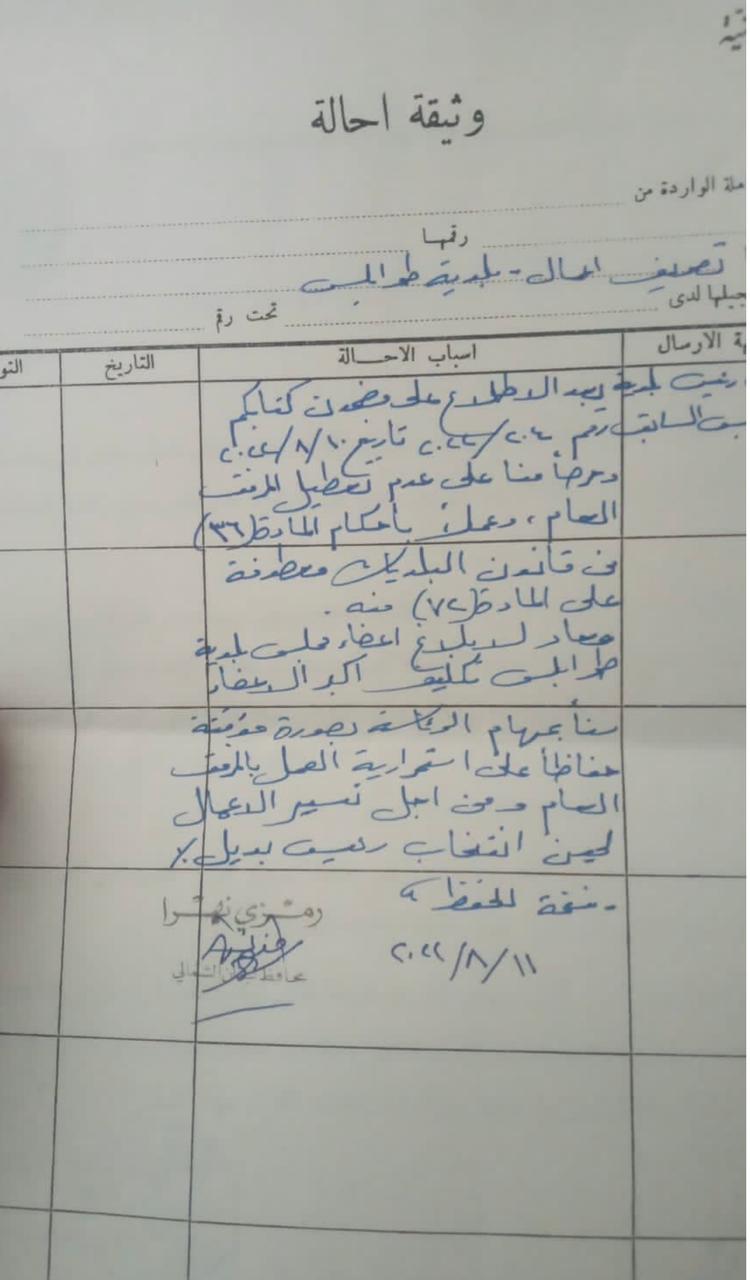 وثيقة احالة
ملة الواردة من
رقمها
تصريف اعمال - بلدية طرابلس
جيلها لدى تحت رقم
ة الارسال اسباب الاحالة التاريخ التو
رئيس بلدية بعد الاطلاع على مضمون كتابكم
السابق رقم ٢٠٤/٢٠٢٢ تاريخ ٢٠٢٢/٨/١٠
وحرصاً منا على عدم تعطيل المرفق
العام، وعملاً بأحكام المادة (٣٦)
من قانون البلديات معطوفة
على المادة (٧٢) منه.
يعاد لابلاغ اعضاء مجلس بلدية
طرابلس تكليف اكبر الاعضاء
سناً بمهام الرئاسة بصورة مؤقتة
حفاظاً على استمرارية العمل بالمرفق
العام ومن اجل تسيير الاعمال
لحين انتخاب رئيس بديل ./
- نسخة للحفظ
رمزي نهرا
٢٠٢٢/٨/١١
محافظ لبنان الشمالي